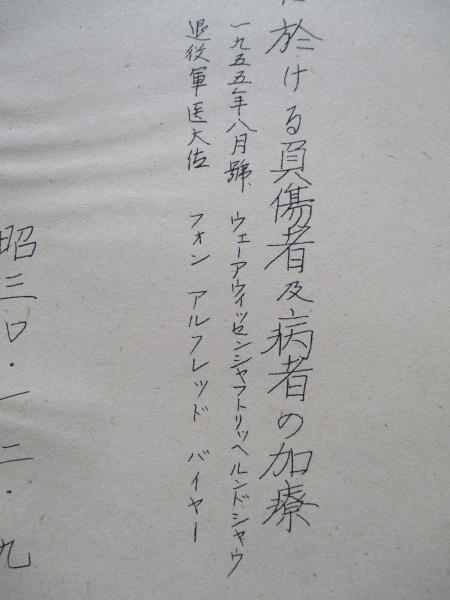 に於ける負傷者及病者の加療
一九五五年八月號 ウェーアウィッセンシャフトリッヘルンドシャウ
退役軍医大佐 フォン アルフレッド バイヤー
昭三〇・一二・九